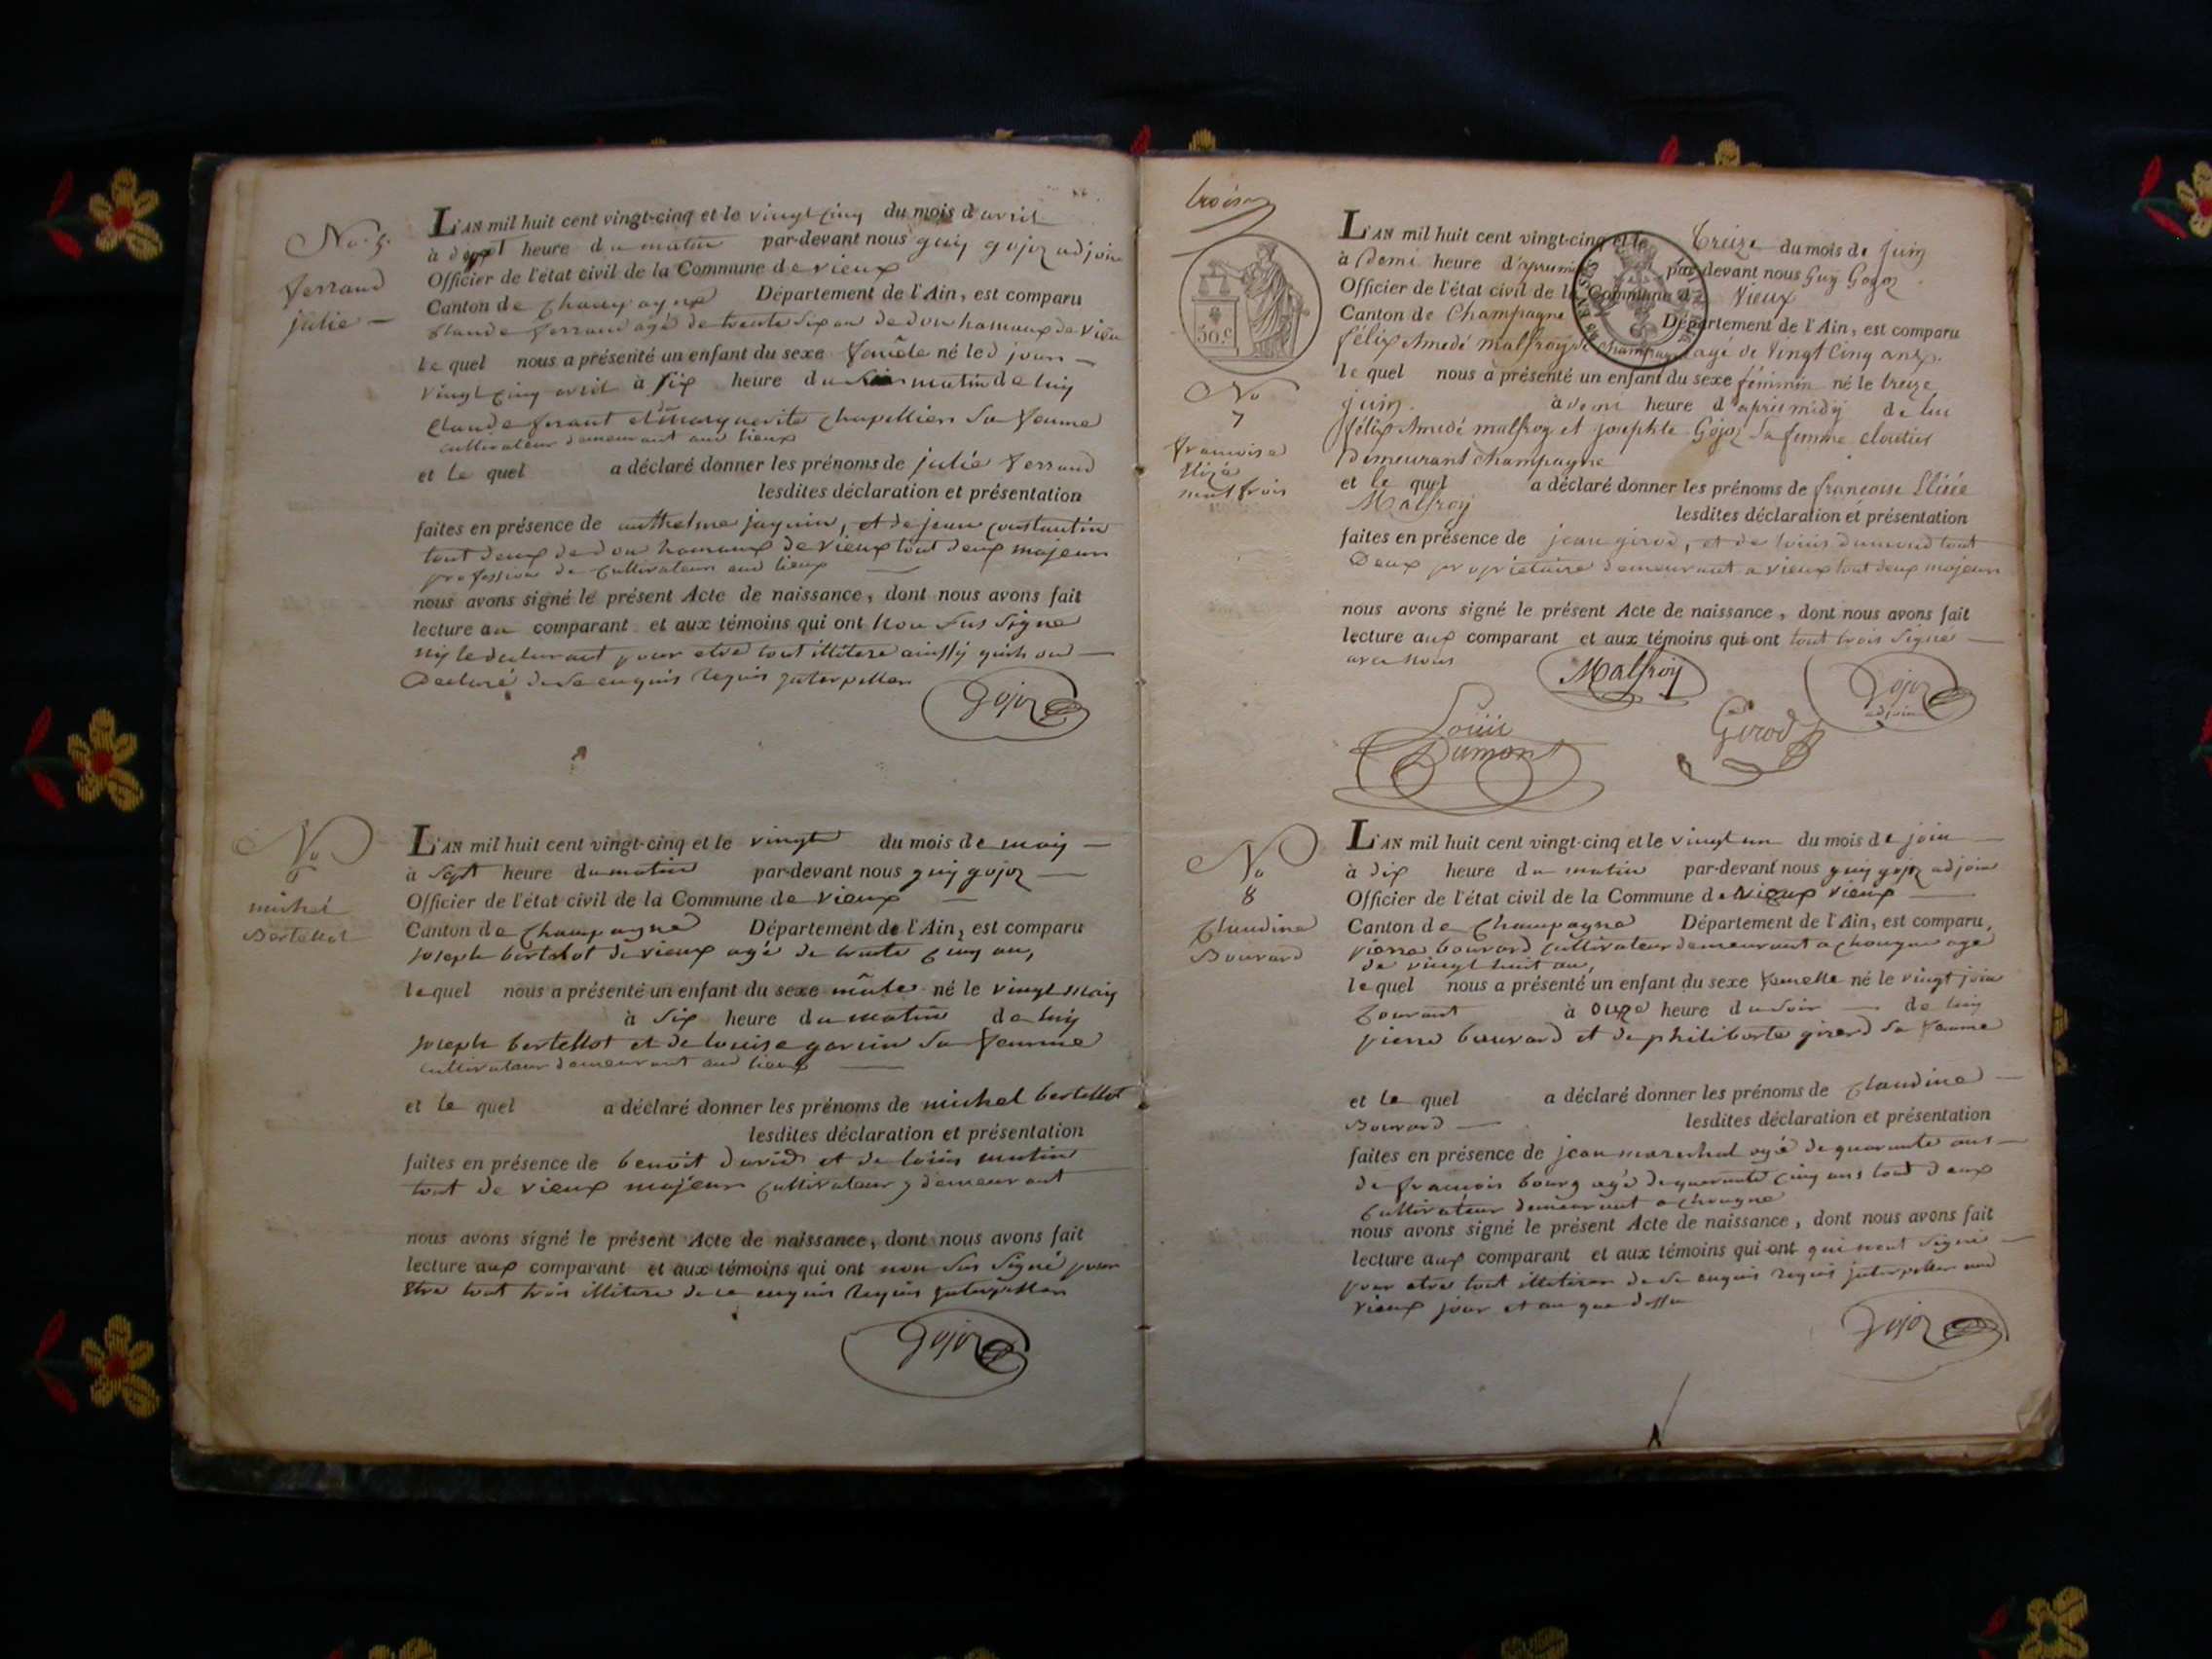 No. 5.
ferrand
julie —
L'AN mil huit cent vingt-cinq et le vingt cinq du mois d'avril
à sept heure du matin par-devant nous guy gojoz adjoin
Officier de l'état civil de la Commune de vieux
Canton de Champagne Département de l'Ain, est comparu
Claude ferrand agé de trente six an de don hamaux de vieu
le quel nous a présenté un enfant du sexe né le d jour —
vingt cinq avril à six heure du matin de luy
Claude ferant et marguerite chapellier sa feume
cultivateur demeurant aud lieux
et le quel a déclaré donner les prénoms de julie ferrand
lesdites déclaration et présentation
faites en présence de anthelme jaquin, et de jean constantin
tout deux de don hamaux de vieux tout deux majeurs
profession de cultivateur aud lieux
nous avons signé le présent Acte de naissance, dont nous avons fait
lecture au comparant et aux témoins qui ont non sus signe
ny le declarant pour etre tout illitere ainssy quils ond —
Declaré de ce enquis requis
Gojoz
No
6
michel
Bertellot
L'AN mil huit cent vingt-cinq et le vingt du mois de may —
à sept heure du matin par-devant nous guy gojoz —
Officier de l'état civil de la Commune de vieux —
Canton de Champagne Département de l'Ain, est comparu
joseph bertelot de vieux agé de trante cinq an,
le quel nous a présenté un enfant du sexe mâle né le vingt may
à six heure du matin de luy
joseph bertellot et de louise garin sa feumme
cultivataur demeurant aud lieux —
et le quel a déclaré donner les prénoms de michel bertellot
lesdites déclaration et présentation
faites en présence de benoit david et de louis
tout de vieux majeurs cultivateur y demeurant
nous avons signé le présent Acte de naissance, dont nous avons fait
lecture aux comparant et aux témoins qui ont non sus signé pour
etre tout trois illitere de ce enquis requis
Gojoz
troisiem
30.c
No
7
francoise
Elizé
malfrois
L'AN mil huit cent vingt-cinq et le treize du mois de juin
à Demi heure d'aprumi par-devant nous Guy Gojoz
Officier de l'état civil de la Commune d Vieux
Canton de Champagne Département de l'Ain, est comparu
félix Amedé malfroy de Champagne agé de vingt cinq ans
le quel nous a présenté un enfant du sexe féminin né le treize
juin. à demi heure d'apriemidy de lui
félix Amedé malfroy et josephte Gojoz sa femme cloutier
Demeurant champagne
et le quel a déclaré donner les prénoms de françoise Elisée
Malfroy lesdites déclaration et présentation
faites en présence de jean girod, et de louis dumond tout
Deux propriétaire demeurant a vieux tout deux majeurs
nous avons signé le présent Acte de naissance, dont nous avons fait
lecture aux comparant et aux témoins qui ont tout trois signé —
avec nous
Malfroy
Gojoz
adjoin
Louis
Dumont
Girod
No
8
Claudine
Bouvard
L'AN mil huit cent vingt-cinq et le vingt un du mois de join —
à dix heure du matin par-devant nous guy gojoz adjoin
Officier de l'état civil de la Commune de vieux vieux —
Canton de Champagne Département de l'Ain, est comparu,
pierre bouvard cultivateur demeurant a chougne agé
de vingt huit an,
le quel nous a présenté un enfant du sexe femelle né le vingt join
Courant à onze heure du soir — de luy
pierre bouvard et de philiberte girerd sa feume
et le quel a déclaré donner les prénoms de Claudine —
Bouvard — lesdites déclaration et présentation
faites en présence de jean marechal agé de quarante ans —
de francois bourg agé de quarante cinq ans tout deux
Cultivateur demeurant a chougne
nous avons signé le présent Acte de naissance, dont nous avons fait
lecture aux comparant et aux témoins qui ont qui nont signé —
pour etre tout de ce enquis requis
vieux jour et an que dessu
Gojoz